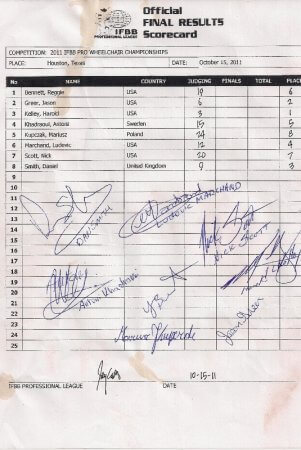 IFBB
PROFESSIONAL LEAGUE
Official
FINAL RESULTS
Scorecard
COMPETITION: 2011 IFBB PRO WHEELCHAIR CHAMPIONSHIPS
PLACE: Houston, Texas DATE: October 15, 2011
No NAME COUNTRY JUDGING FINALS TOTAL PLACE
1 Bennett, Reggie USA 19 6
2 Greer, Jason USA 6 2
3 Kelley, Harold USA 3 1
4 Khadraoui, Antoni Sweden 15 5
5 Kupczak, Mariusz Poland 24 8
6 Marchand, Ludovic USA 12 4
7 Scott, Nick USA 20 7
8 Smith, Daniel United Kingdom 9 3
9
10
11
12
13
14
15
16
17
18
19
20
21
22
23
24
25
DAN SMITH
LUDOVIC MARCHAND
NICK SCOTT
IFBB PROFESSIONAL LEAGUE DATE 10-15-11